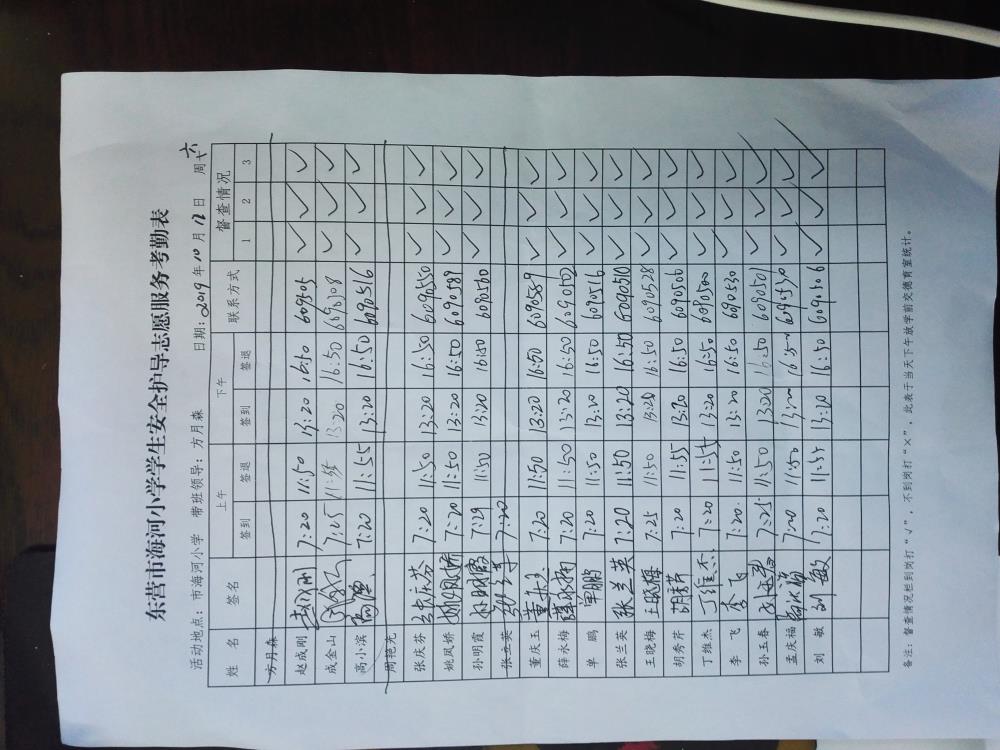 东营市海河小学学生安全护导志愿服务考勤表
活动地点：市海河小学 带班领导：方月森 日期：2019年10月12日 周六
姓 名 签名 上午 下午 联系方式 督查情况
签到 签退 签到 签退 1 2 3
方月森
赵成刚 赵成刚 7:20 11:50 13:20 16:50 609505 ✓ ✓ ✓
成金山 7:25 11:55 13:20 16:50 ✓ ✓ ✓
高小滨 7:20 11:55 13:20 16:50 6090516 ✓ ✓ ✓
周艳光
张庆芬 张庆芬 7:20 11:50 13:20 16:50 6090550 ✓ ✓ ✓
姚凤娇 姚凤娇 7:20 11:50 13:20 16:50 6090589 ✓ ✓ ✓
孙明霞 孙明霞 7:19 11:50 13:20 16:50 6090510 ✓ ✓ ✓
张立英 7:20
董庆玉 7:20 11:50 13:20 16:50 6090589 ✓ ✓ ✓
薛永梅 薛永梅 7:20 11:50 13:20 16:50 6090502 ✓ ✓ ✓
单 鹏 单鹏 7:20 11:50 13:20 16:50 6090516 ✓ ✓ ✓
张兰英 张兰英 7:20 11:50 13:20 16:50 6090510 ✓ ✓ ✓
王晓梅 王晓梅 7:25 11:50 13:20 16:50 6090528 ✓ ✓ ✓
胡秀芹 胡秀芹 7:20 11:55 13:20 16:50 6090506 ✓ ✓ ✓
丁维杰 丁维杰 7:20 11:55 13:20 16:50 6090500 ✓ ✓ ✓
李 飞 李飞 7:20 11:50 13:20 16:50 6090530 ✓ ✓ ✓
孙玉春 7:25 11:50 13:20 16:50 6090501 ✓ ✓ ✓
孟庆福 7:20 11:50 13:20 16:50 6090530 ✓ ✓ ✓
刘 敏 刘敏 7:20 11:55 13:20 16:50 6090506 ✓ ✓ ✓
备注：督查情况栏到岗打“√”，不到岗打“×”，此表于当天下午放学前交德育室统计。